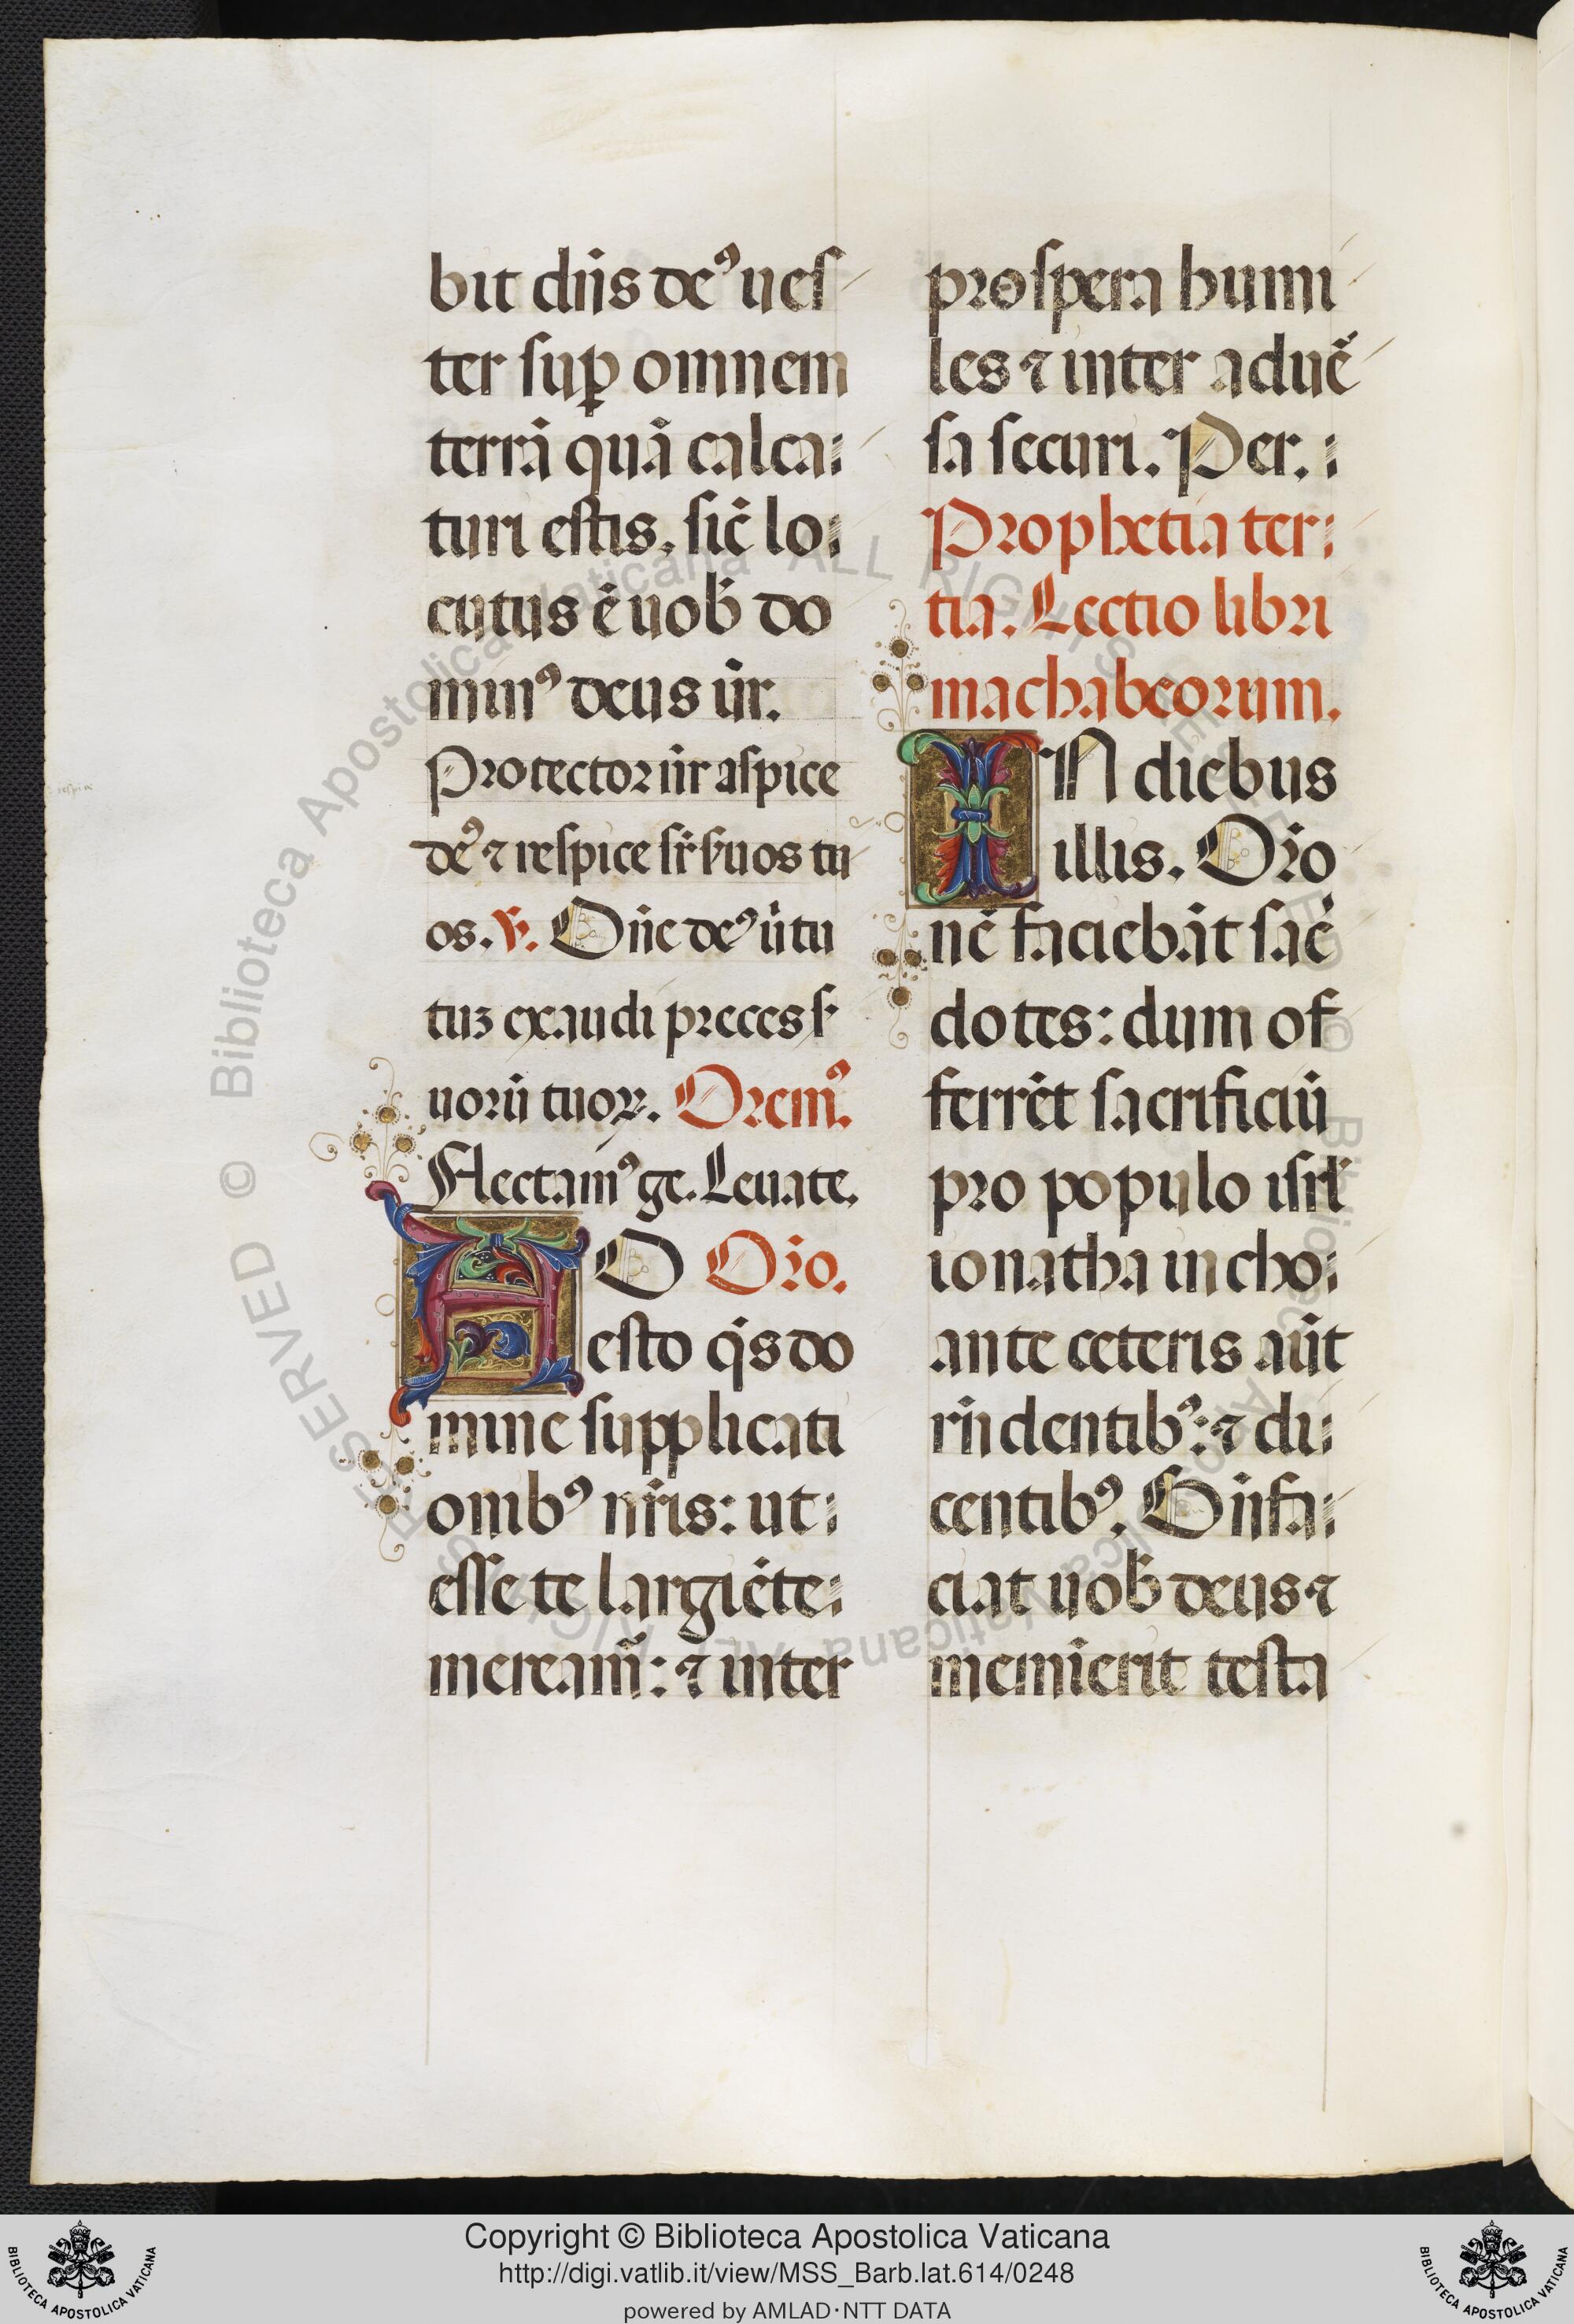 bit dn̄s deꝰ ueſ
ter suꝑ omnem
terrā quā calca
turi estis, sic̄ lo
cutus ē uob̄ do
minꝰ deus ūr.
Protector nr̄ aspice
deꝰ ⁊ respice sr̄ ẜuos tu
os. ℣. Dn̄e deꝰ ū̄tu
tuꝫ exaudi preces ẜ
uorū tuoꝝ. Oremꝰ.
Flectamꝰ ge. Leuate.
AD Or̄o.
esto qs̄ do
mine supplicati
onibꝰ nr̄is: ut
esse te largiēte
mereamr̄: ⁊ inter
prospera humi
les ⁊ inter aduē
sa securi. Per.
Prophetia ter
tia. Lectio libri
machabeorum.
IN diebus
illis. Or̄o
nē faciebāt sac̄
dotes: dum of
ferrēt sacrificiū
pro populo isrl̄
ionatha incho
ante ceteris aūt
rn̄dentibꝰ: ⁊ di
centibꝰ. Bn̄fa
ciat uob̄ deus ⁊
meminerit testa
© Biblioteca Apostolica Vaticana ALL RIGHTS RESERVED
© Biblioteca Apostolica Vaticana ALL RIGHTS RESERVED
Copyright © Biblioteca Apostolica Vaticana
http://digi.vatlib.it/view/MSS_Barb.lat.614/0248
powered by AMLAD·NTT DATA
BIBLIOTECA APOSTOLICA VATICANA
BIBLIOTECA APOSTOLICA VATICANA